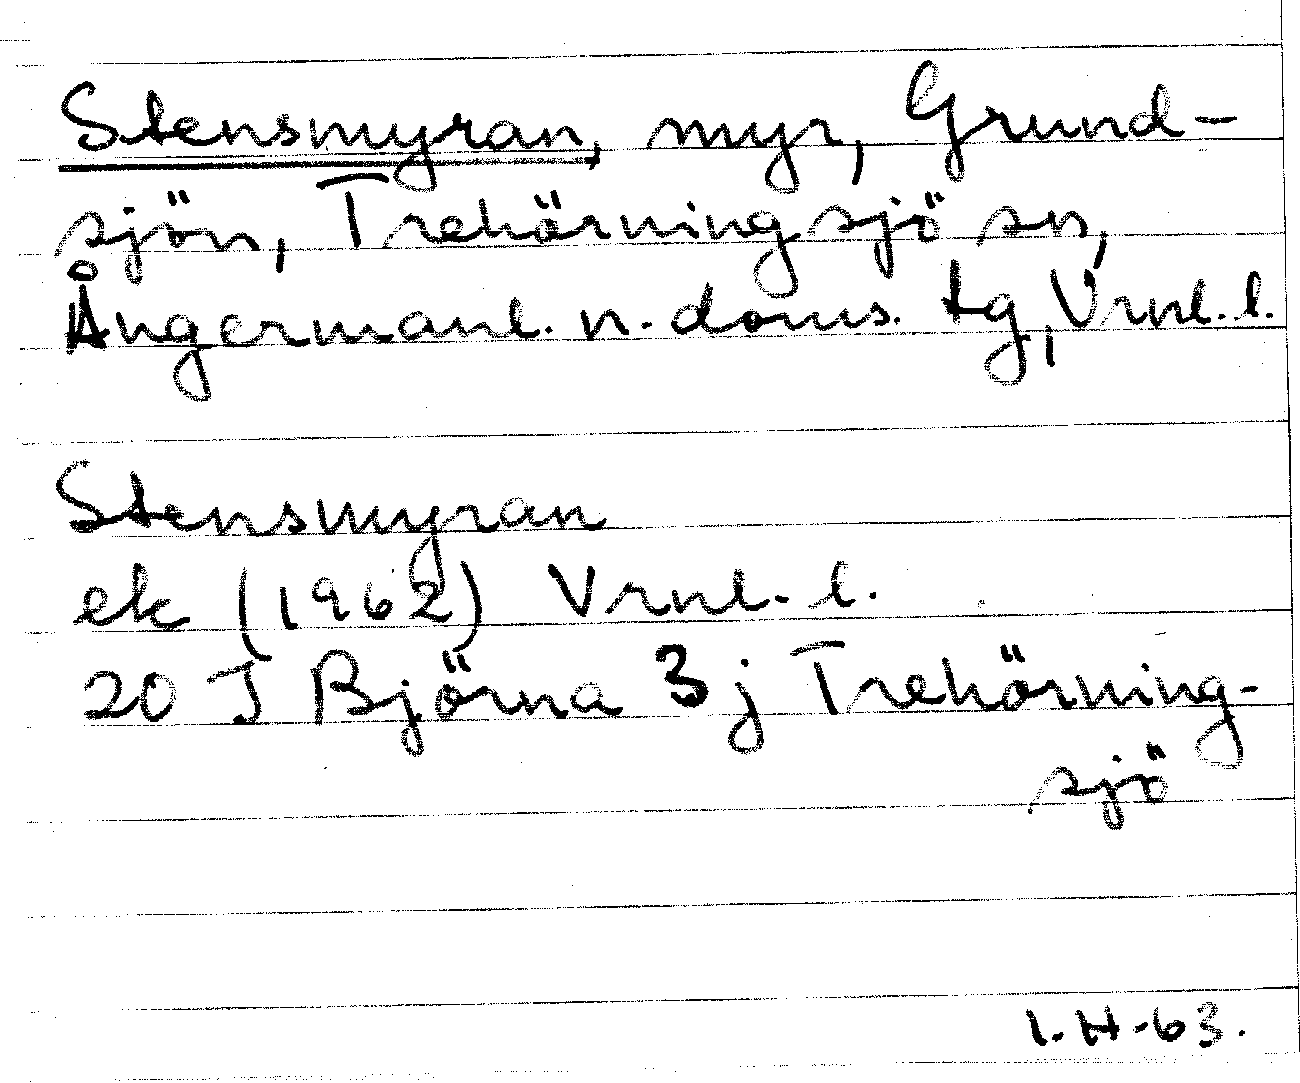 Stensmyran, myr, Grund-
sjön, Trehörningsjö sn,
Ångermanl. n. doms. tg, Vrnl. l.
Stensmyran
ek (1962) Vrnl. l.
20 J Björna 3 j Trehörning-
sjö
I.H-63.